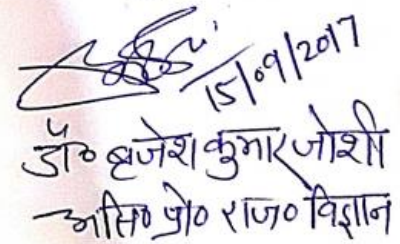 15/09/2017
डॉ० बृजेश कुमार जोशी
असि० प्रो० राज० विज्ञान